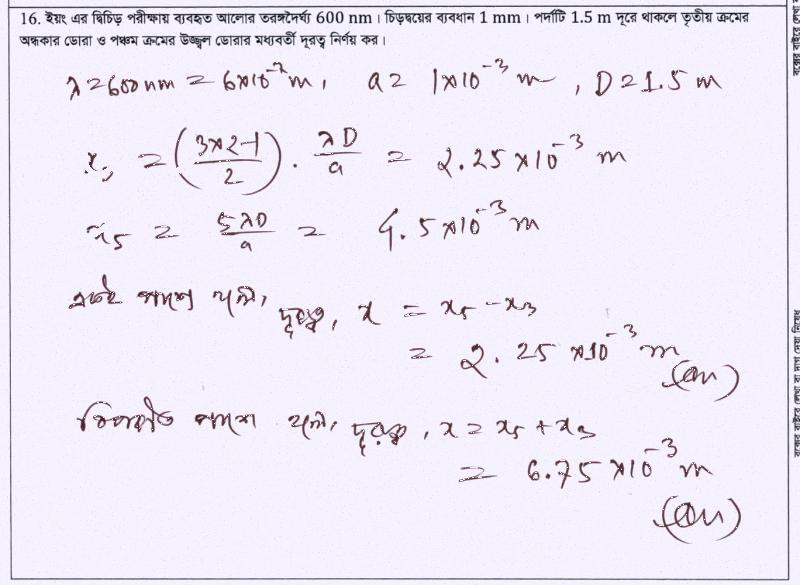 16. ইয়ং এর দ্বিচিড় পরীক্ষায় ব্যবহৃত আলোর তরঙ্গদৈর্ঘ্য 600 nm। চিড়দ্বয়ের ব্যবধান 1 mm। পর্দাটি 1.5 m দূরে থাকলে তৃতীয় ক্রমের
অন্ধকার ডোরা ও পঞ্চম ক্রমের উজ্জ্বল ডোরার মধ্যবর্তী দূরত্ব নির্ণয় কর।
λ = 600 nm = 6×10⁻⁷ m, a = 1×10⁻³ m, D = 1.5 m
x₃ = (3×2-1/2) . λD/a = 2.25×10⁻³ m
x₅ = 5λD/a = 4.5×10⁻³ m
একই পাশে হলে, দূরত্ব, x = x₅ - x₃
= 2.25×10⁻³ m
(Ans)
বিপরীত পাশে হলে, দূরত্ব, x = x₅ + x₃
= 6.75×10⁻³ m
(Ans)